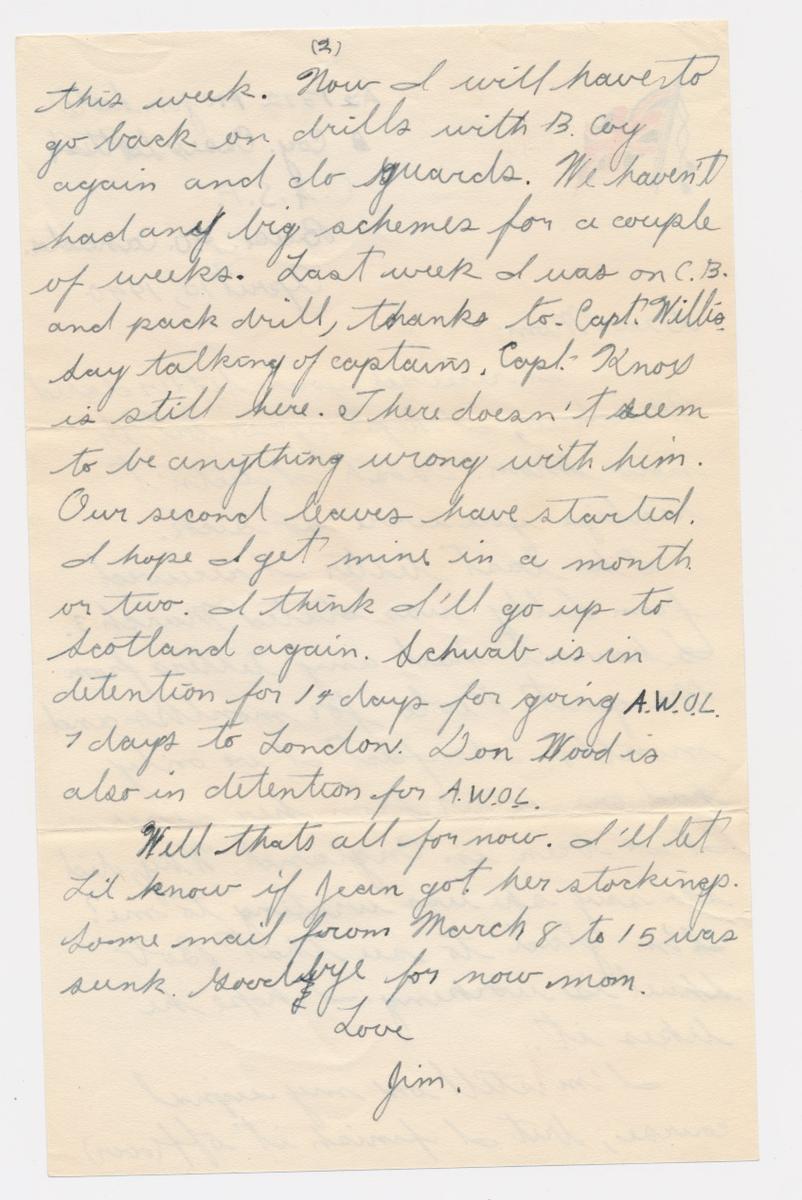 (2)
this week. Now I will have to
go back on drills with B. Coy
again and do guards. We haven't
had any big schemes for a couple
of weeks. Last week I was on C.B.
and pack drill, thanks to Capt. Willis.
Say talking of captains, Capt. Knox
is still here. There doesn't seem
to be anything wrong with him.
Our second leaves have started.
I hope I get mine in a month
or two. I think I'll go up to
Scotland again. Schwab is in
detention for 14 days for going A.W.O.L.
7 days to London. Don Wood is
also in detention for A.W.O.L.
Well thats all for now. I'll let
Lil know if Jean got her stockings.
Some mail from March 8 to 15 was
sunk. Good bye for now mom.
Love
Jim.